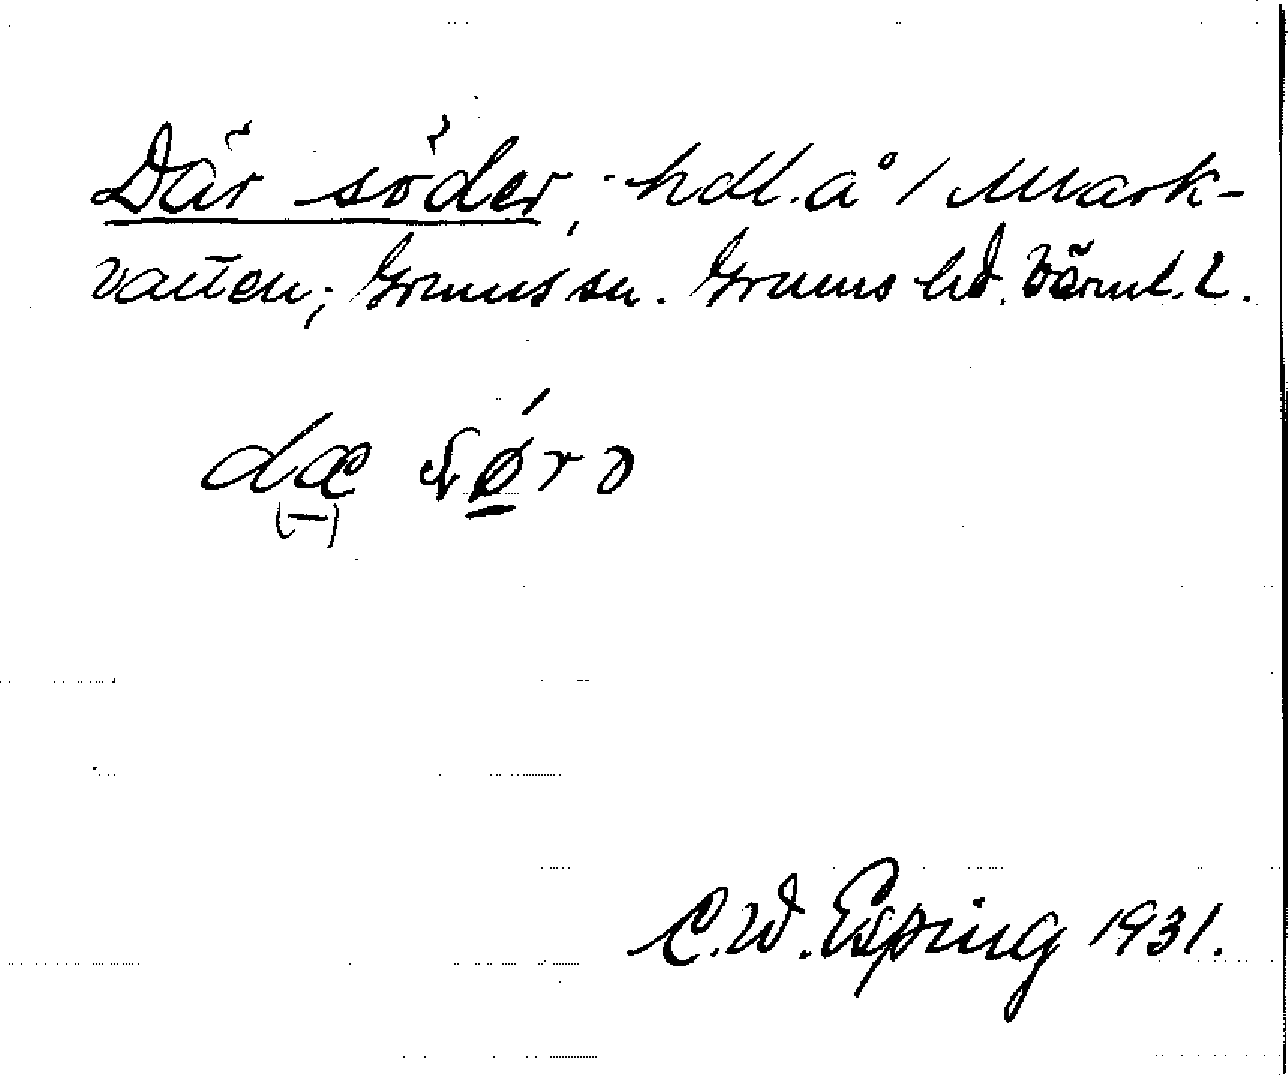 Där söder, hdl. å / Mark-
vatten; Grums sn. Grums hd. Värml. l.
dæ søro
C.W. Esping 1931.